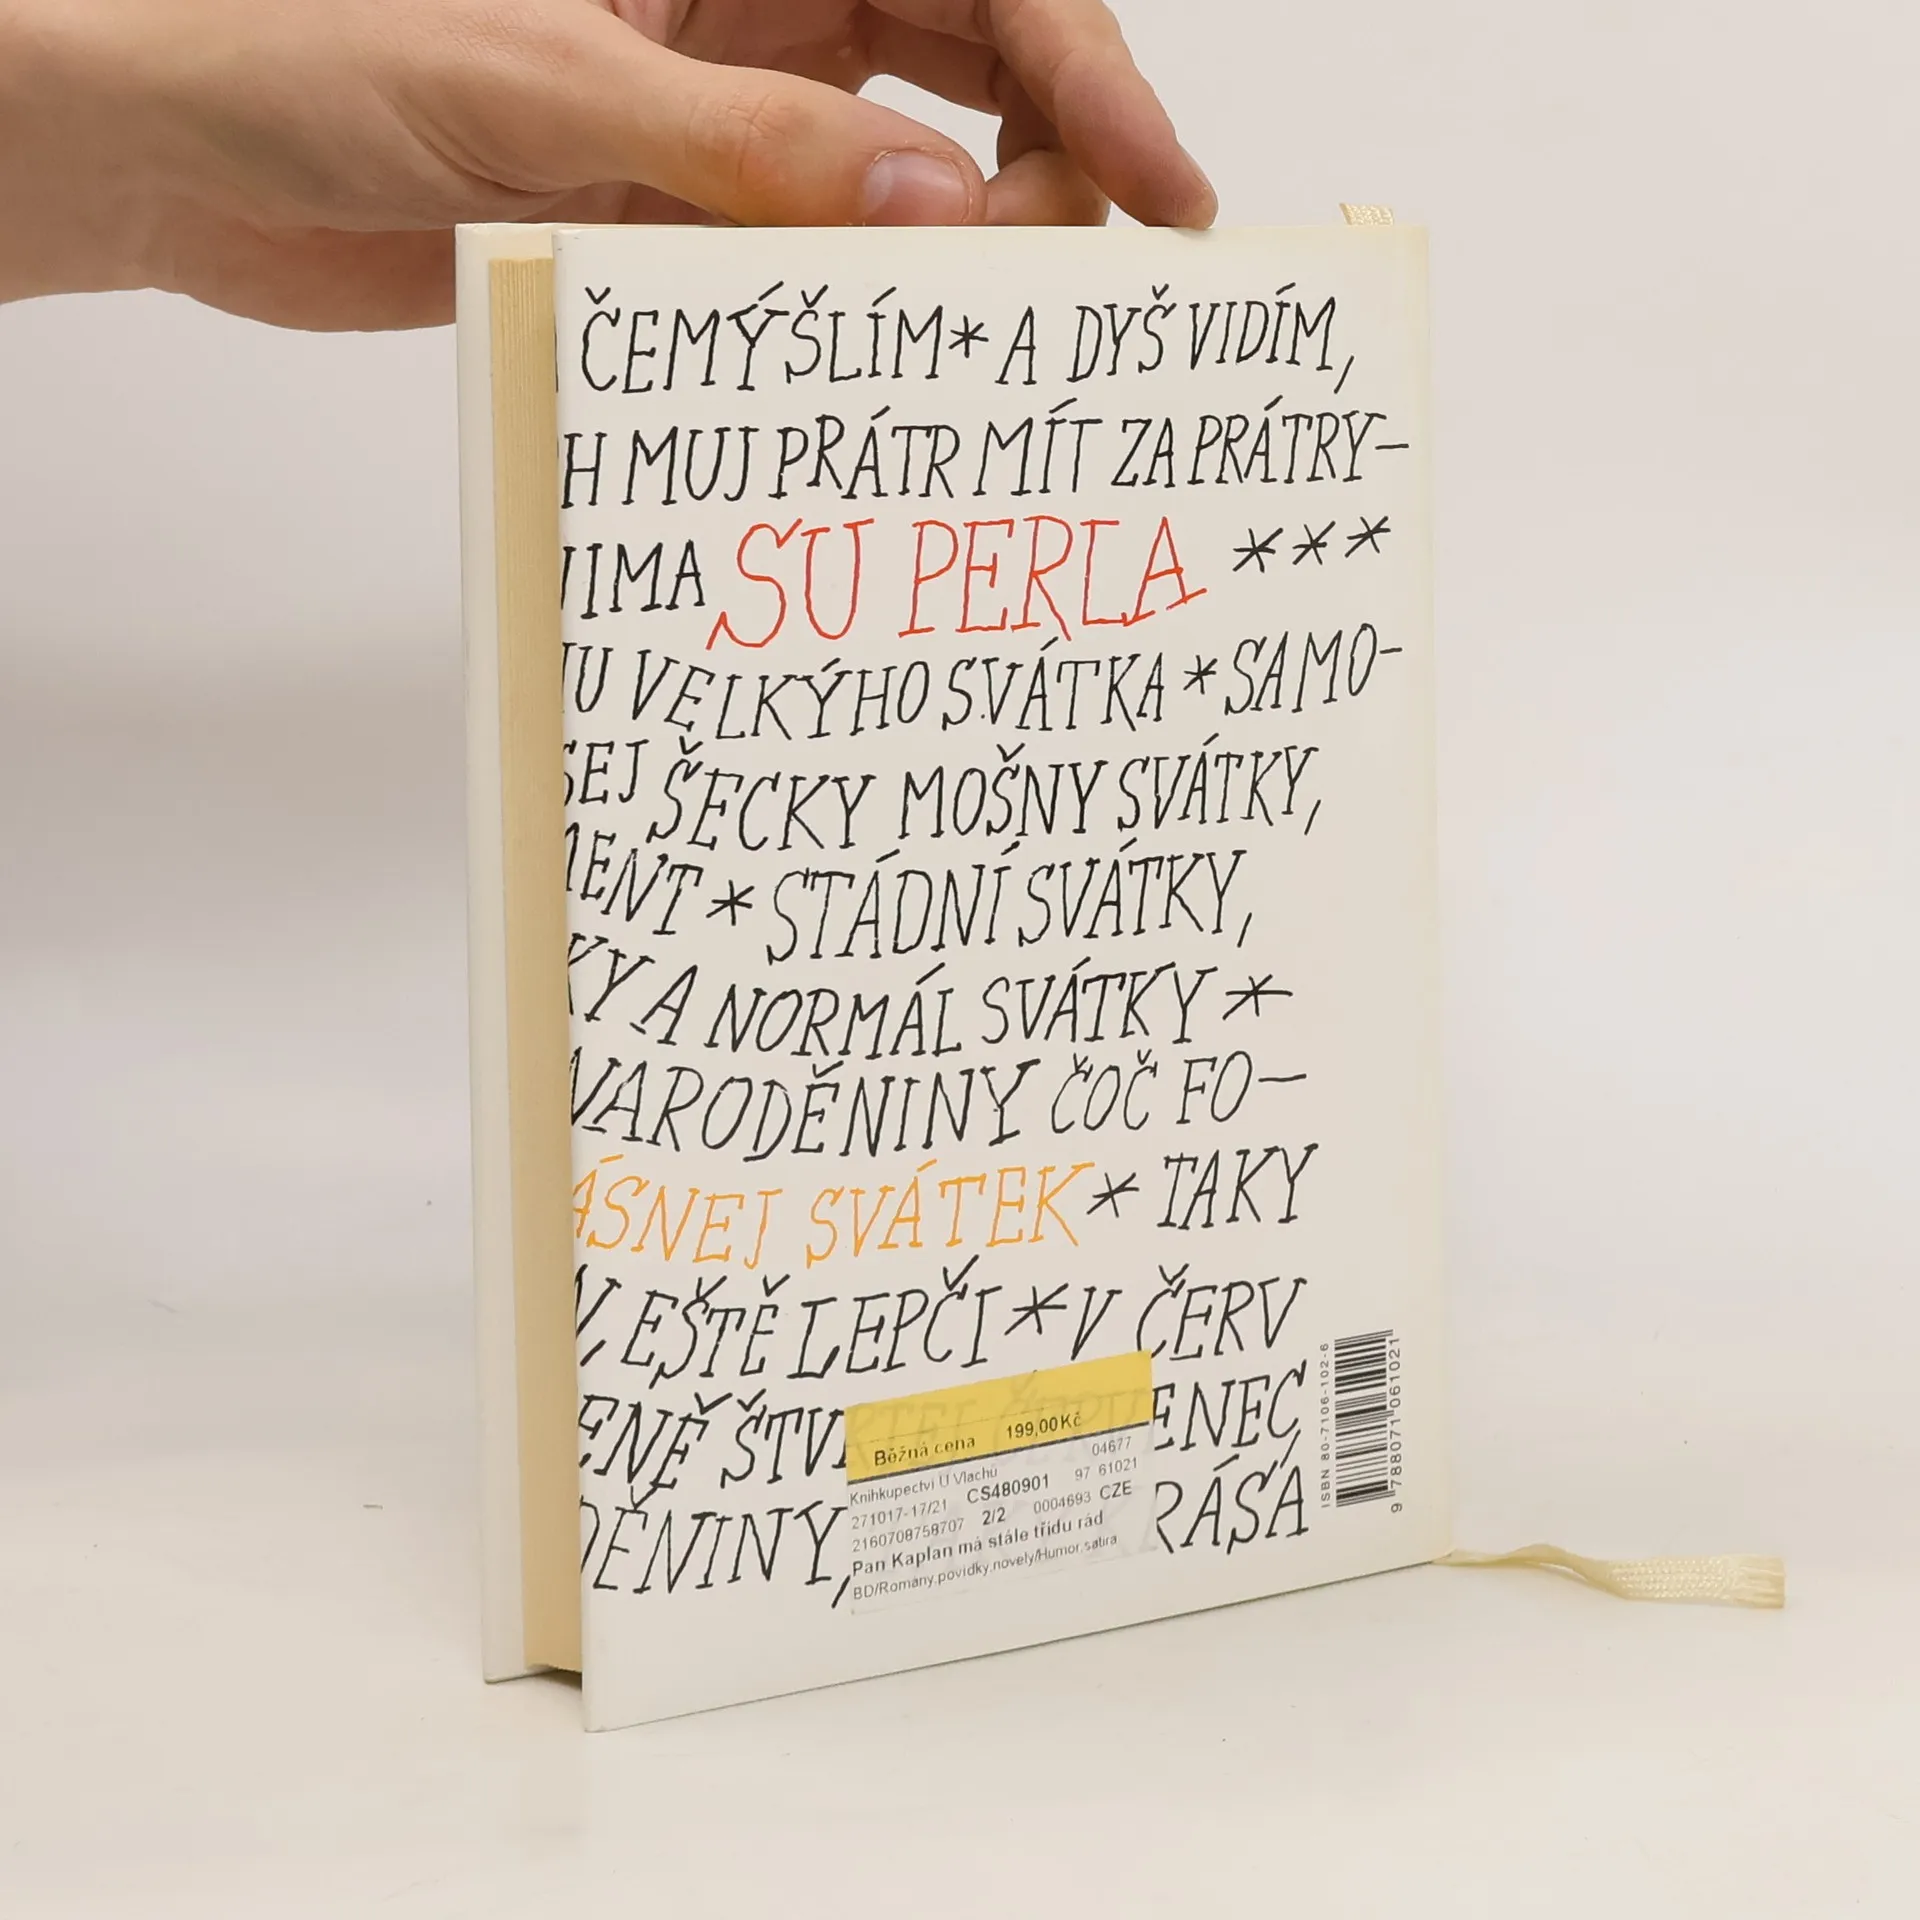 ČEMÝŠLÍM * A DYŠ VIDÍM,
H MUJ PRÁTR MÍT ZA PRÁTRY-
IMA SU PERLA ***
U VELKÝHO SVÁTKA * SAMO-
SEJ ŠECKY MOŠNY SVÁTKY,
MENT * STÁDNÍ SVÁTKY,
KY A NORMÁL SVÁTKY *
NARODĚNINY ČOČ FO-
ÁSNEJ SVÁTEK * TAKY
, EŠTĚ LEPČI * V ČERV
ENĚ ŠTVRTEJ ČERVENEC
DĚNINY, KRÁSÁ
Běžná cena 199,00 Kč
Knihkupectví U Vlachů 04677
271017-17/21 CS480901 97 61021
2160708758707 2/2 0004693 CZE
Pan Kaplan má stále třídu rád
BD/Romány,povídky,novely/Humor,satira
ISBN 80-7106-102-6
9 788071 061021